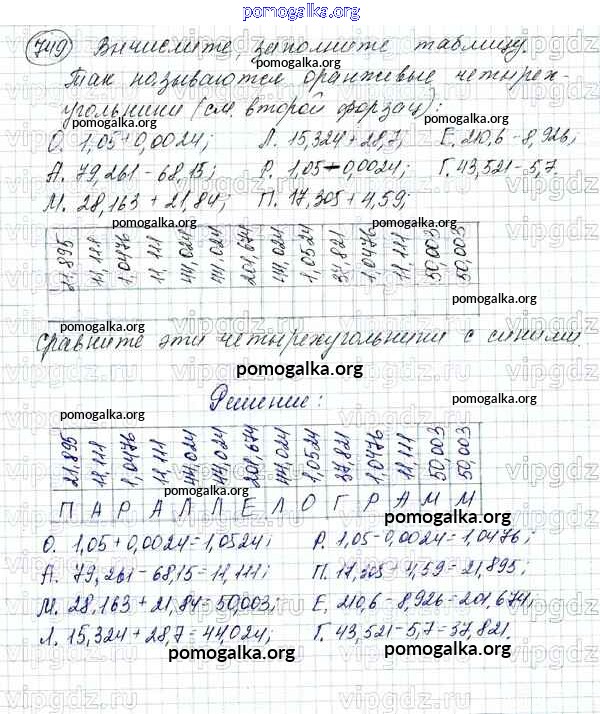 pomogalka.org
749 Вычислите, заполните таблицу.
Так называются оранжевые четырех-
угольники (см. второй форзац):
О. 1,05+0,0024; Л. 15,324+28,7; Е. 210,6-8,926;
А. 79,261-68,15; Р. 1,05-0,0024; Г. 43,521-5,7.
М. 28,163+21,84; П. 17,305+4,59;
21,895 11,111 1,0476 11,111 44,024 44,024 201,674 44,024 1,0524 37,821 1,0476 11,111 50,003 50,003
Сравните эти четырехугольники с синими
pomogalka.org
Решение:
21,895 11,111 1,0476 11,111 44,024 44,024 201,674 44,024 1,0524 37,821 1,0476 11,111 50,003 50,003
П А Р А Л Л Е Л О Г Р А М М
О. 1,05+0,0024=1,0524; Р. 1,05-0,0024=1,0476;
А. 79,261-68,15=11,111; П. 17,305+4,59=21,895;
М. 28,163+21,84=50,003; Е. 210,6-8,926=201,674;
Л. 15,324+28,7=44,024; Г. 43,521-5,7=37,821.
pomogalka.org